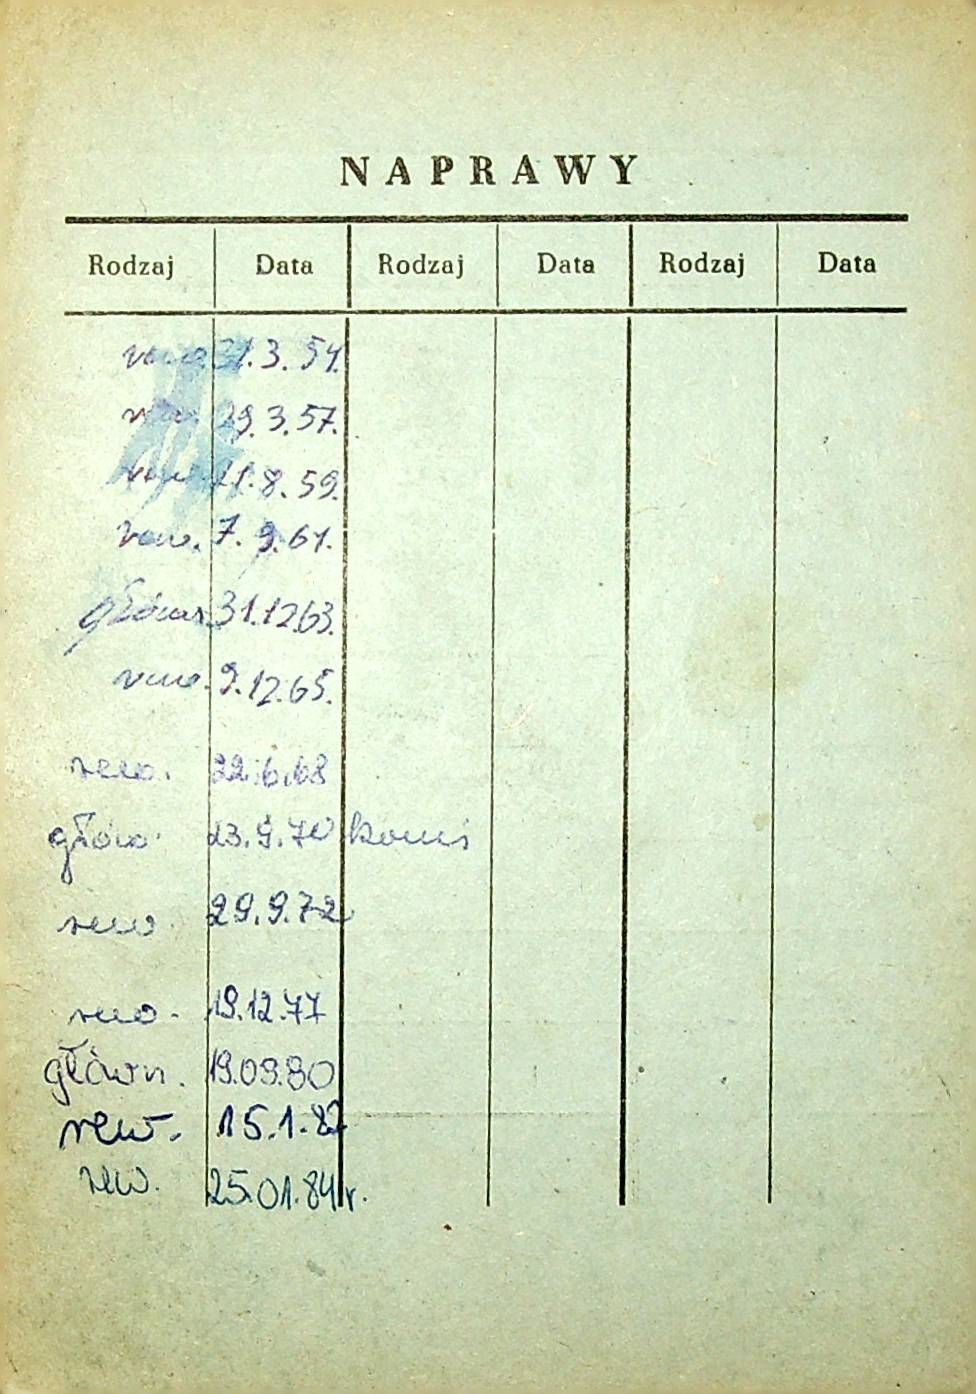 NAPRAWY
Rodzaj Data Rodzaj Data Rodzaj Data
rew. 31.3.54.
rew. 29.3.57.
rew. 11.8.59.
rew. 7.9.61.
główn. 31.12.63.
rew. 9.12.65.
rew. 22.6.68
główn. 23.9.70
rew. 29.9.72
rew. 19.12.77
główn. 19.09.80
rew. 15.1.82
rew. 25.01.84r.